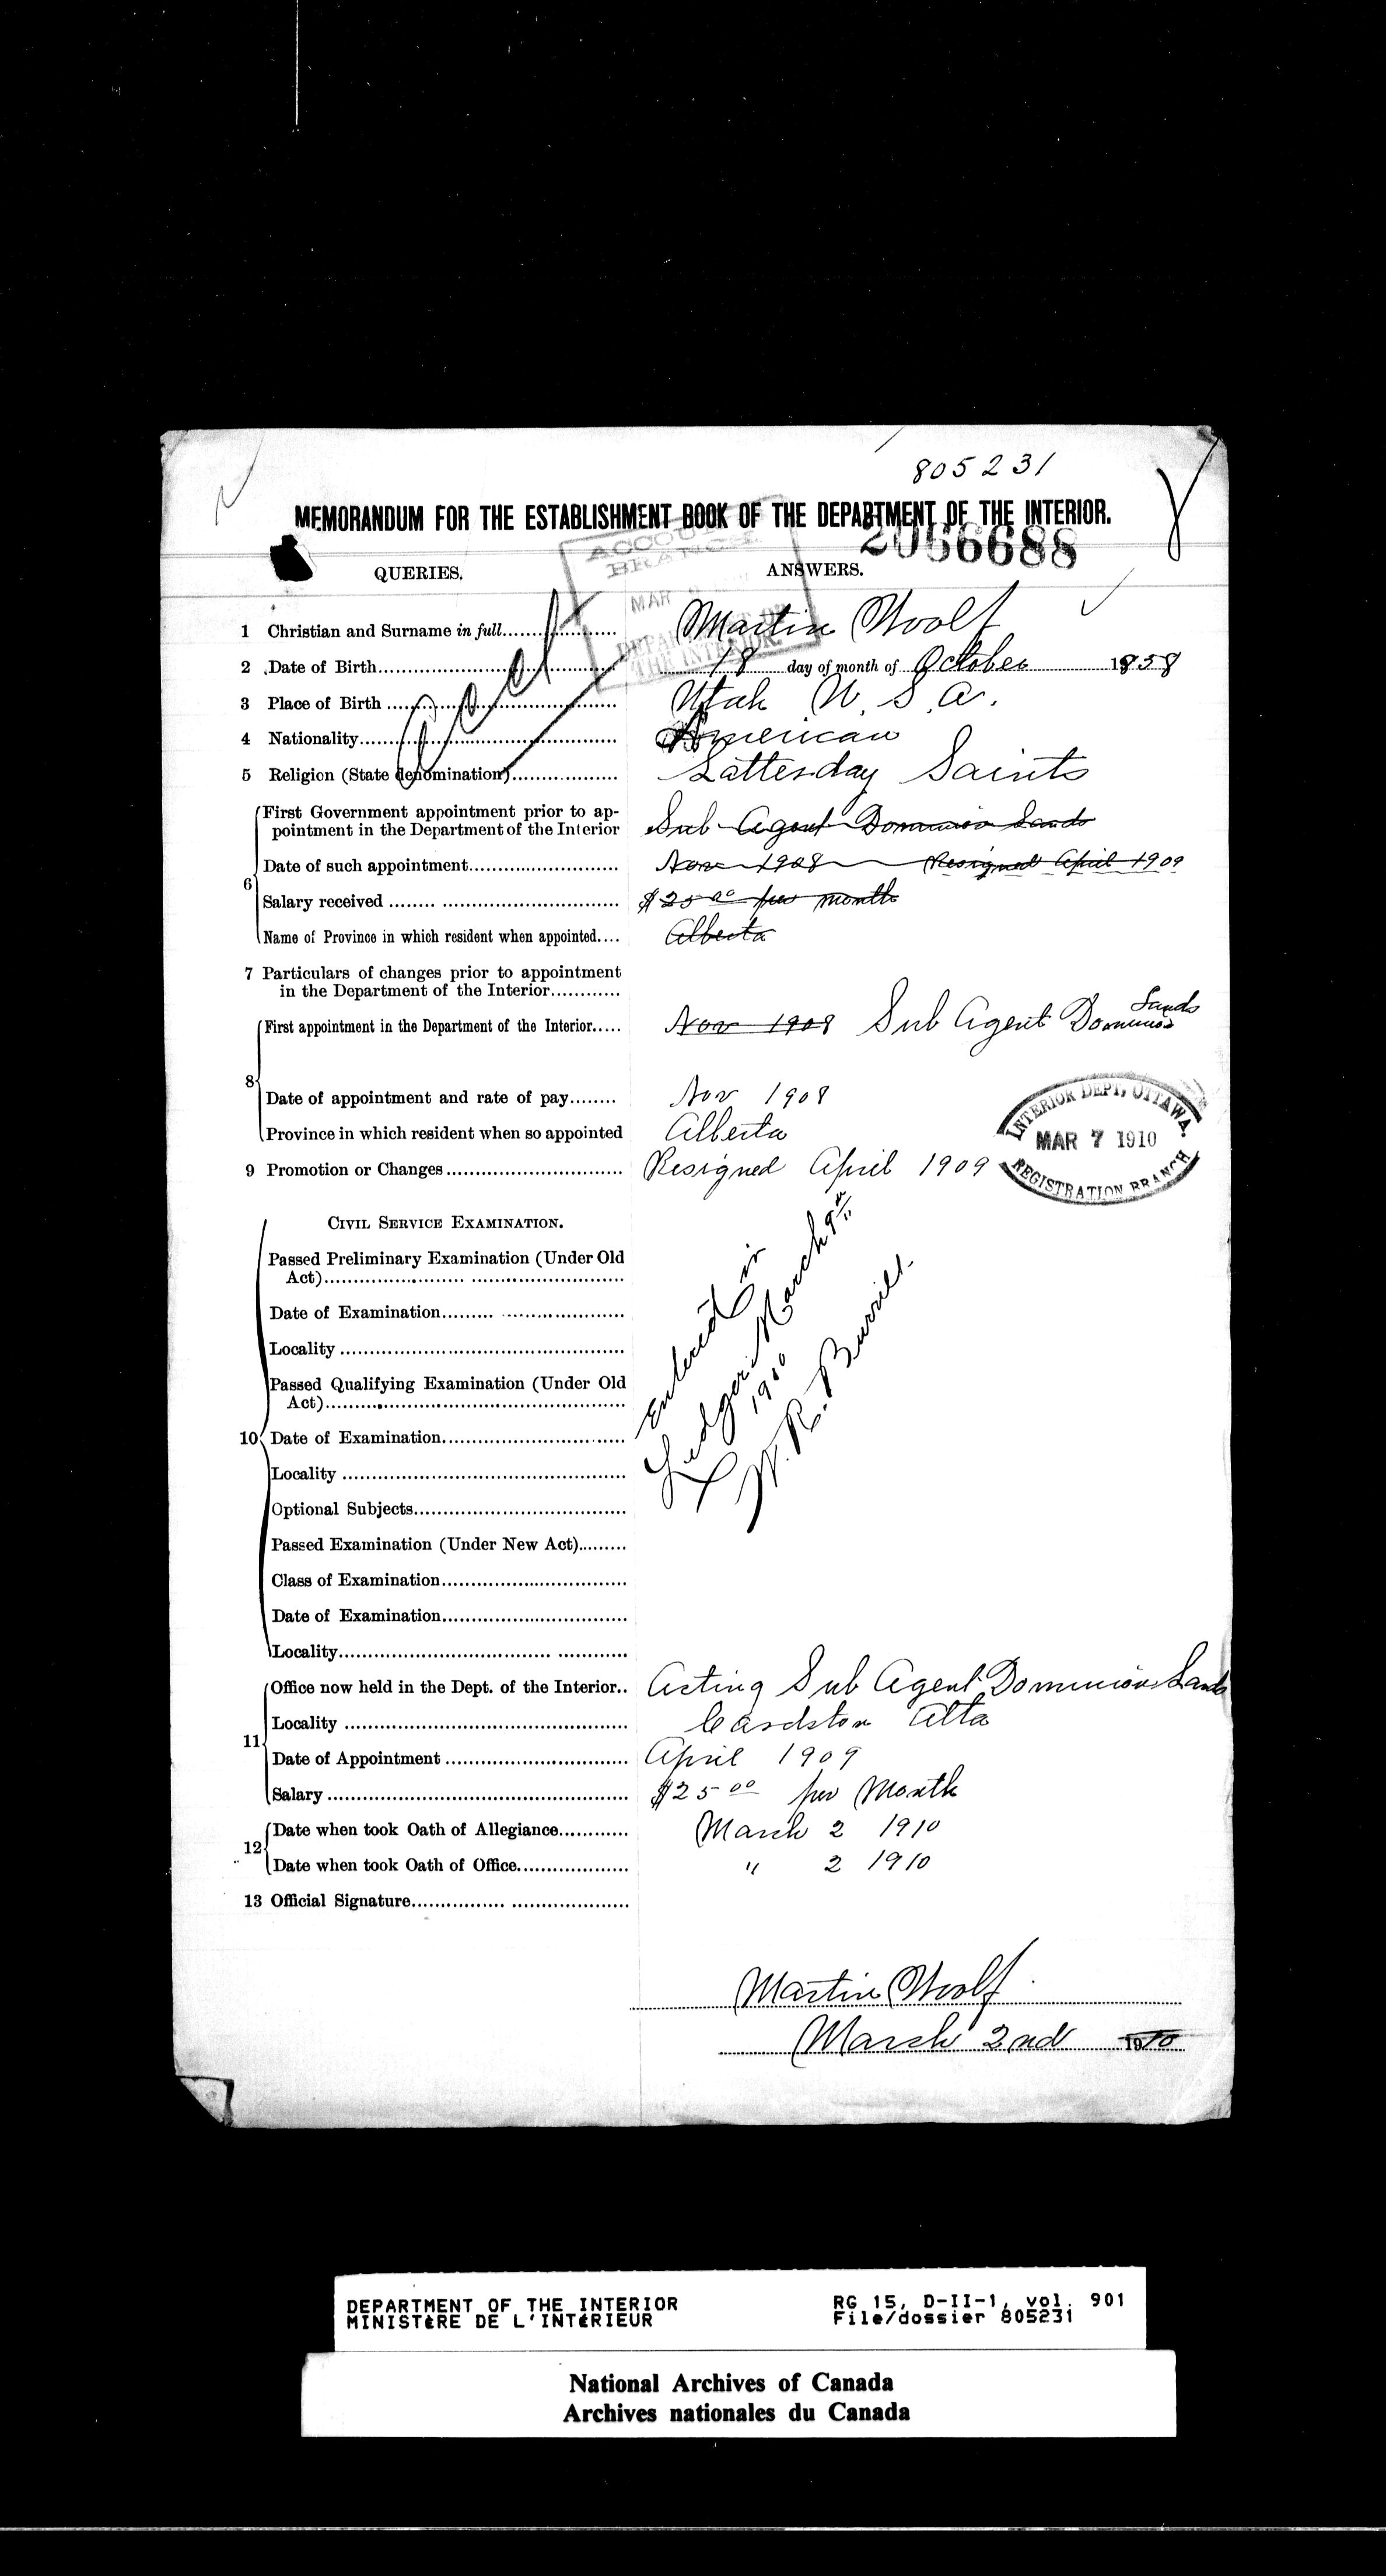 805231
MEMORANDUM FOR THE ESTABLISHMENT BOOK OF THE DEPARTMENT OF THE INTERIOR.
2066688
QUERIES. ANSWERS.
ACCOUNTS
BRANCH
MAR
DEPARTMENT OF
THE INTERIOR.
1 Christian and Surname in full.................... Martin Woolf
2 Date of Birth.................... 18 day of month of October 1858
3 Place of Birth .................... Utah U. S. A.
4 Nationality.................... American
5 Religion (State denomination).................... Latterday Saints
6
First Government appointment prior to ap-
pointment in the Department of the Interior Sub Agent Dominion Lands
Date of such appointment.................... Nov 1908 Resigned April 1909
Salary received .................... $25 00 per month
Name of Province in which resident when appointed.... Alberta
7 Particulars of changes prior to appointment
in the Department of the Interior............
8
First appointment in the Department of the Interior..... Nov 1908 Sub Agent Dominion Lands
Date of appointment and rate of pay........ Nov 1908
Province in which resident when so appointed Alberta
INTERIOR DEPT, OTTAWA.
MAR 7 1910
REGISTRATION BRANCH
9 Promotion or Changes.................... Resigned April 1909
CIVIL SERVICE EXAMINATION.
10
Passed Preliminary Examination (Under Old
Act)....................
Date of Examination....................
Locality ....................
Passed Qualifying Examination (Under Old
Act)....................
Date of Examination....................
Locality ....................
Optional Subjects....................
Passed Examination (Under New Act).........
Class of Examination....................
Date of Examination....................
Locality....................
Entered in
Ledger March 9th
1910
W. R. Burrill.
11
Office now held in the Dept. of the Interior.. Acting Sub Agent Dominion Lands
Locality .................... Cardston Alta
Date of Appointment .................... April 1909
Salary .................... $25 00 per Month
12
Date when took Oath of Allegiance............ March 2 1910
Date when took Oath of Office.................... " 2 1910
13 Official Signature....................
Martin Woolf
March 2nd 1910
DEPARTMENT OF THE INTERIOR RG 15, D-II-1, vol. 901
MINISTÈRE DE L'INTÉRIEUR File/dossier 805231
National Archives of Canada
Archives nationales du Canada